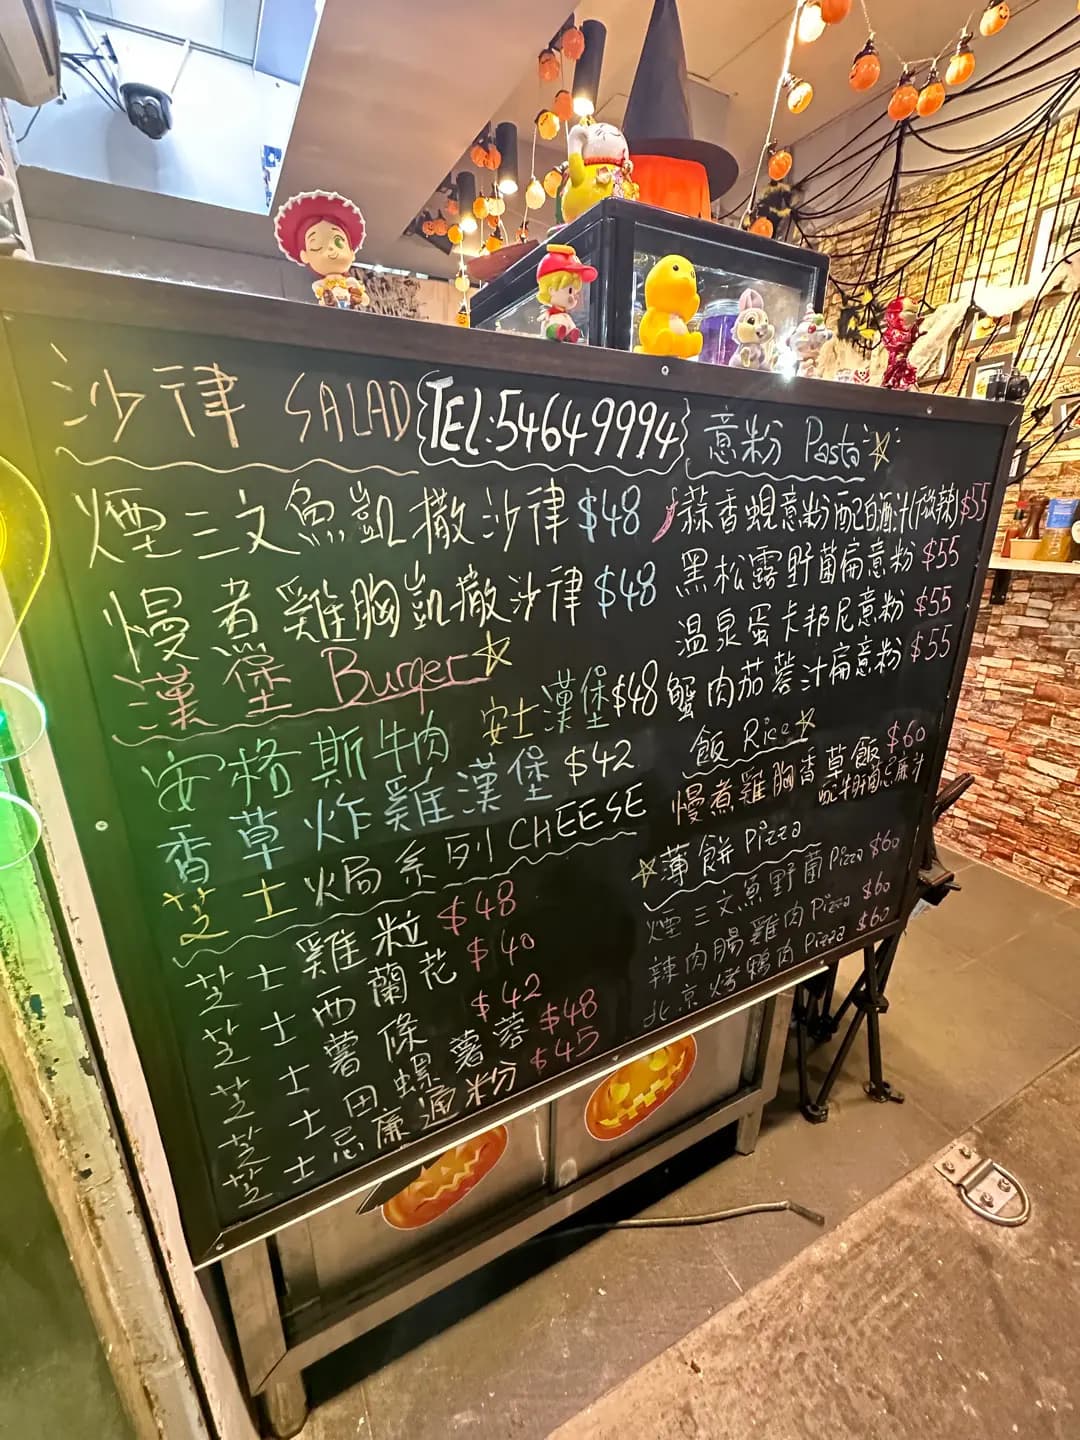 沙律 SALAD
TEL:54649994
煙三文魚凱撒沙律 $48
慢煮雞胸凱撒沙律 $48
漢堡 Burger
安格斯牛肉 安士漢堡 $48
香草炸雞漢堡 $42
芝士焗系列 CHEESE
芝士雞粒 $48
芝士西蘭花 $40
芝士薯條 $42
芝士田螺薯蓉 $48
芝士忌廉通粉 $45
意粉 Pasta
蒜香蜆意粉配白酒汁(微辣) $55
黑松露野菌扁意粉 $55
溫泉蛋卡邦尼意粉 $55
蟹肉茄蓉汁扁意粉 $55
飯 Rice
慢煮雞胸香草飯 $60
配牛肝菌忌廉汁
薄餅 Pizza
煙三文魚野菌 Pizza $60
辣肉腸雞肉 Pizza $60
北京烤鴨肉 Pizza $60